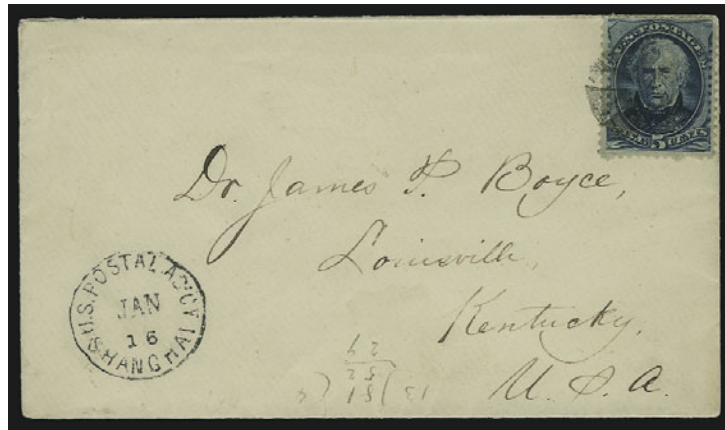 U.S. POSTAGE
FIVE 5 CENTS
Dr. James P. Boyce,
Louisville,
Kentucky,
U. S. A.
U.S. POSTAL AG'CY
JAN
16
SHANGHAI